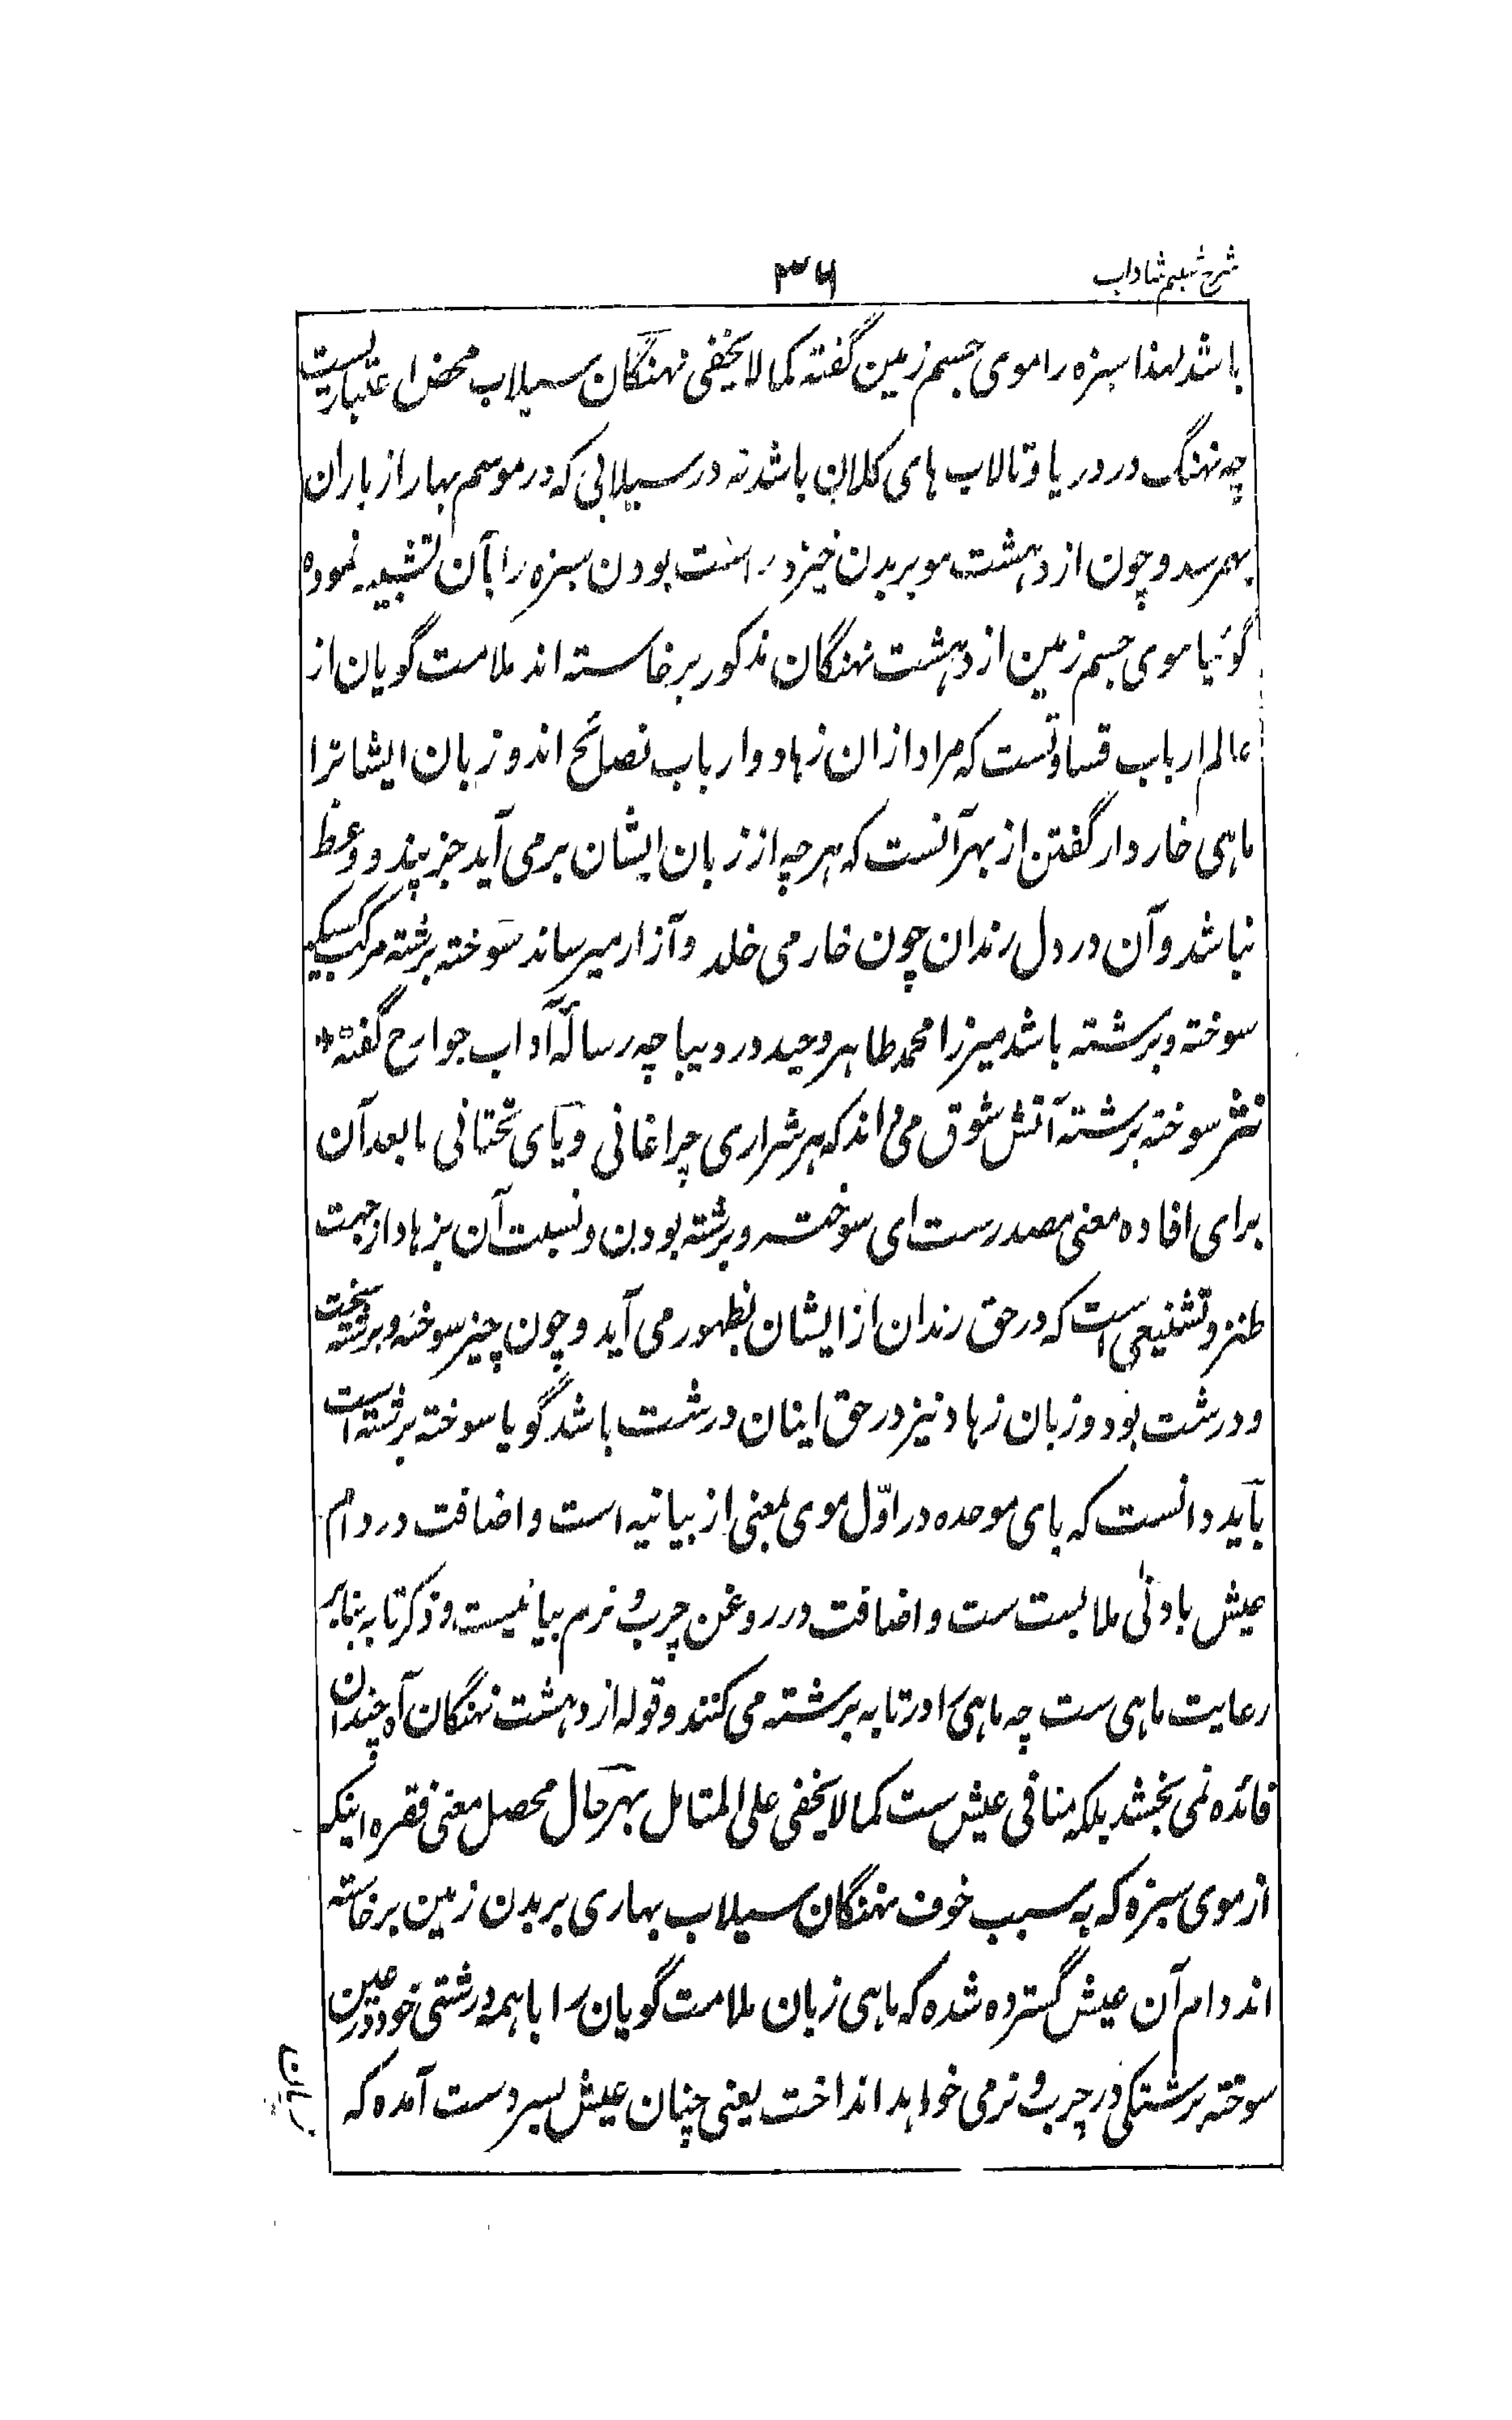 شرح شبنم شاداب
۳۶
باشد لهذا سبزه را موی جسم زمین گفته کما لا یخفی نهنگان سیلاب محض اعتباریست
چه نهنگ در دریا و تالاب های کلان باشد نه در سیلابی که در موسم بهار از باران
بهمرسد و چون از دهشت مو بر بدن خیزد راست بودن سبزه را بآن تشبیه نموده
گوئیا موی جسم زمین از دهشت نهنگان مذکور برخاسته اند ملامت گویان از
عالم ارباب قساوتست که مراد ازان زهاد و ارباب نصائح اند و زبان ایشانرا
ماهی خاردار گفتن از بهر آنست که هرچه از زبان ایشان بر می آید جز پند و وعظ
نباشد و آن در دل رندان چون خار می خلد و آزار میرساند سوخته برشته مرکب یکی
سوخته و برشته باشد میرزا محمد طاهر وحید در دیباچه رسالهٔ آداب جوارح گفته *
نثر سوخته برشته آتش شوق می داند که هر شراری چراغانی و یای تحتانی ما بعد آن
برای افاده معنی مصدرست ای سوخته و برشته بودن و نسبت آن بزهاد از جهت
طنز و تشنیعی است که در حق رندان از ایشان بظهور می آید و چون چیز سوخته و برشته سخت
و درشت بود و زبان زهاد نیز در حق اینان درشت باشد گویا سوخته برشته است
باید دانست که بای موحده در اوّل موی بمعنی از بیانیه است و اضافت در دام
عیش بادنیٰ ملابست ست و اضافت در روغن چرب و نرم بیانیست و ذکر تابه بنابر
رعایت ماهی ست چه ماهی را در تابه برشته می کنند و قوله از دهشت نهنگان آه چندان
فائده نمی بخشد بلکه منافی عیش ست کما لا یخفی علی المتامل بهرحال محصل معنی فقره اینکه
از موی سبزه که به سبب خوف نهنگان سیلاب بهاری بر بدن زمین برخاسته
اند دام آن عیش گسترده شده که ماهی زبان ملامت گویان را با همه درشتی خود در عین
سوخته برشتگی در چرب و نرمی خواهد انداخت یعنی چنان عیش بسر دست آمده که
زبان